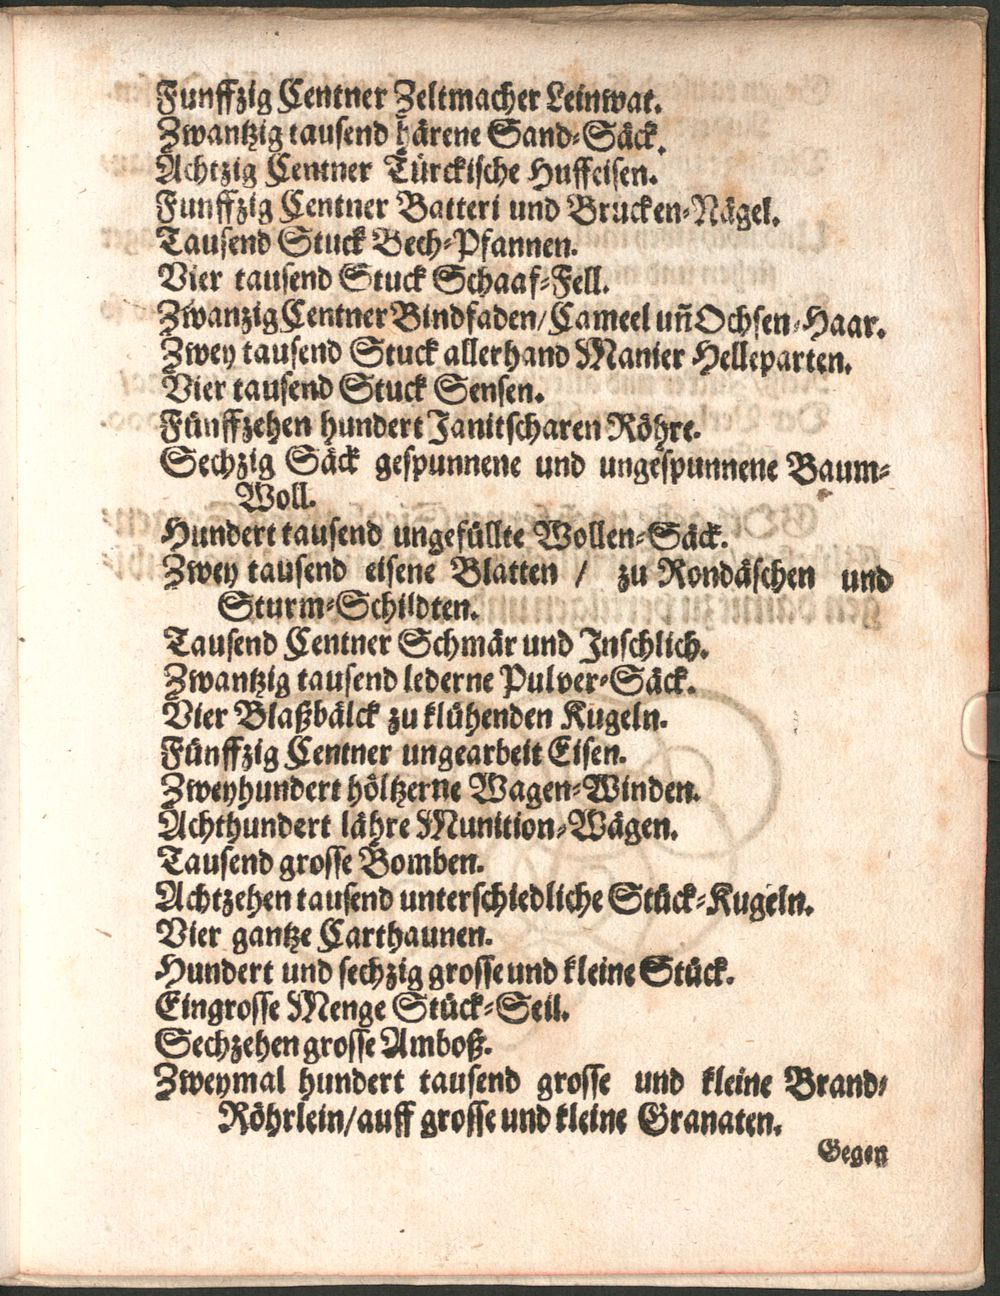 Funffzig Centner Zeltmacher Leinwat.
Zwantzig tausend härene Sand-Säck.
Achtzig Centner Türckische Huffeisen.
Funffzig Centner Batteri und Brucken-Nägel.
Tausend Stuck Bech-Pfannen.
Vier tausend Stuck Schaaf-Fell.
Zwanzig Centner Bindfaden/ Cameel uñ Ochsen-Haar.
Zwey tausend Stuck allerhand Manier Helleparten.
Vier tausend Stuck Sensen.
Fünffzehen hundert Janitscharen Röhre.
Sechzig Säck gespunnene und ungespunnene Baum-
Woll.
Hundert tausend ungefüllte Wollen-Säck.
Zwey tausend eisene Blatten / zu Rondäschen und
Sturm-Schildten.
Tausend Centner Schmär und Inschlich.
Zwantzig tausend lederne Pulver-Säck.
Vier Blaßbälck zu klühenden Kugeln.
Fünffzig Centner ungearbeit Eisen.
Zweyhundert höltzerne Wagen-Winden.
Achthundert lähre Munition-Wägen.
Tausend grosse Bomben.
Achtzehen tausend unterschiedliche Stück-Kugeln.
Vier gantze Carthaunen.
Hundert und sechzig grosse und kleine Stück.
Ein grosse Menge Stück-Seil.
Sechzehen grosse Amboß.
Zweymal hundert tausend grosse und kleine Brand-
Röhrlein/ auff grosse und kleine Granaten.
Gegen